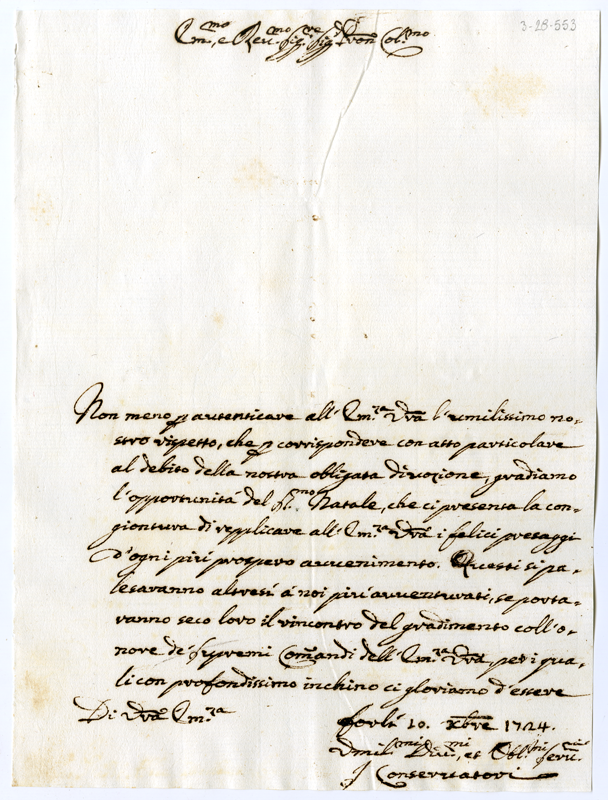 3-28-553
Em.mo, e Rev.mo Sig.re Sig.re P'ron Col.mo
Non meno p autenticare all'Em.za Vra l'umilissimo no-
stro rispetto, che p corrispondere con atto particolare
al debito della nostra obligata divozione, gradiamo
l'opportunità del SS.mo Natale, che ci presenta la con-
giontura di repplicare all'Em.za Vra i felici presaggi
d'ogni più prospero avvenimento. Questi si pa-
lesaranno altresì à noi più avventurati, se porta-
ranno seco loro il rincontro del gradimento coll'o-
nore de' supremi Comandi dell'Em.za Vra, per i qua-
li con profondissimo inchino ci gloriamo d'essere
Di Vra Em.za
Forlì 10. Xbre 1724.
Umil.mi Div.mi, et Obl.mi Serv.ri
I Conservatori